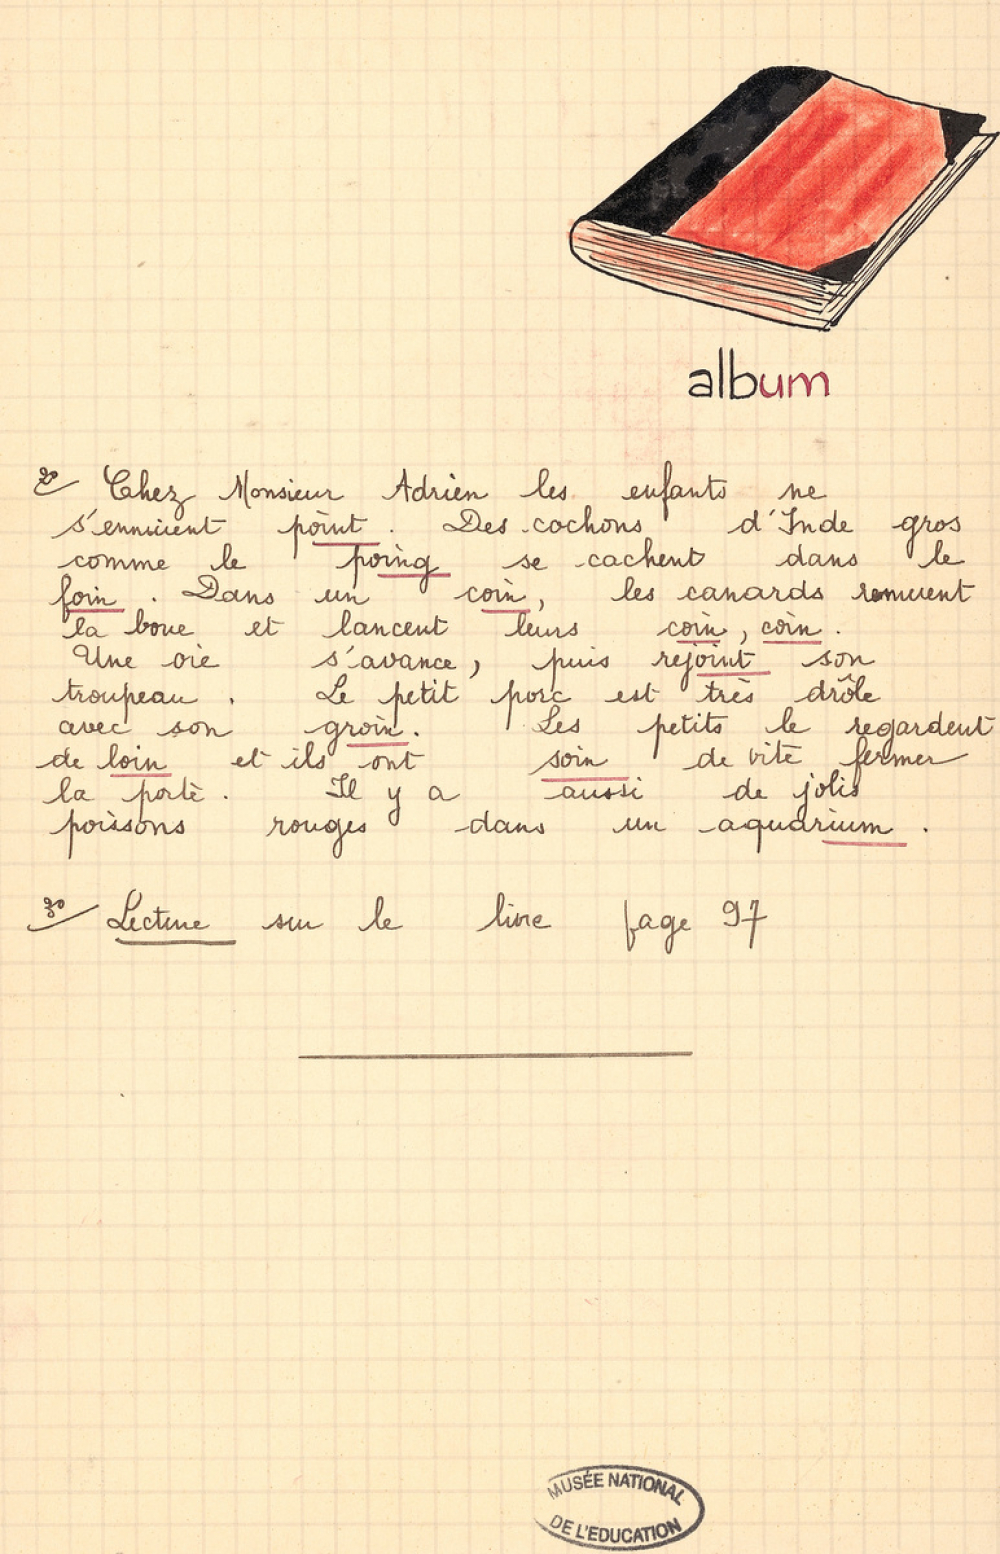 album
2°/ Chez Monsieur Adrien les enfants ne
s'ennuient point. Des cochons d'Inde gros
comme le poing se cachent dans le
foin. Dans un coin, les canards remuent
la boue et lancent leurs coin, coin.
Une oie s'avance, puis rejoint son
troupeau. Le petit porc est très drôle
avec son groin. Les petits le regardent
de loin et ils ont soin de vite fermer
la porte. Il y a aussi de jolis
poissons rouges dans un aquarium.
3°/ Lecture sur le livre page 97
MUSÉE NATIONAL
DE L'EDUCATION